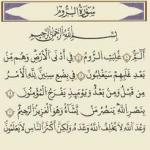 سورة الروم
بسم الله الرحمن الرحيم
الم ۝١ غلبت الروم ۝٢ في أدنى الأرض وهم من
بعد غلبهم سيغلبون ۝٣ في بضع سنين لله الأمر
من قبل ومن بعد ويومئذ يفرح المؤمنون ۝٤
بنصر الله ينصر من يشاء وهو العزيز الرحيم ۝٥
وعد الله لا يخلف الله وعده ولكن أكثر الناس لا يعلمون